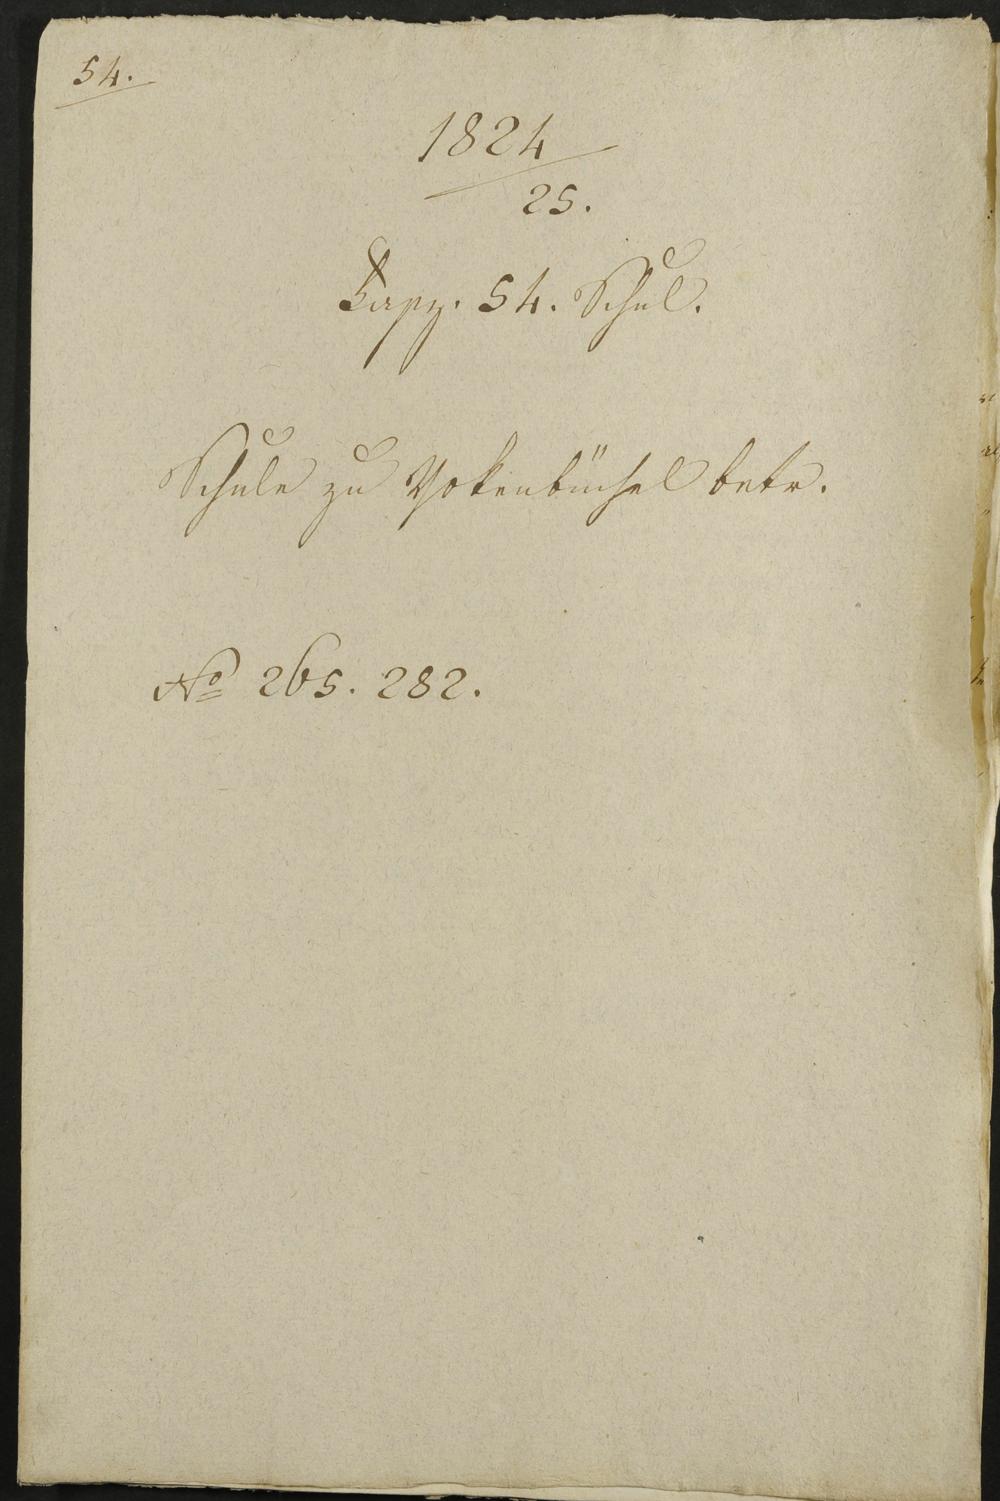 54.
1824
25.
54. Schul.
Schule zu Yokenbüchel betr.
No 265. 282.